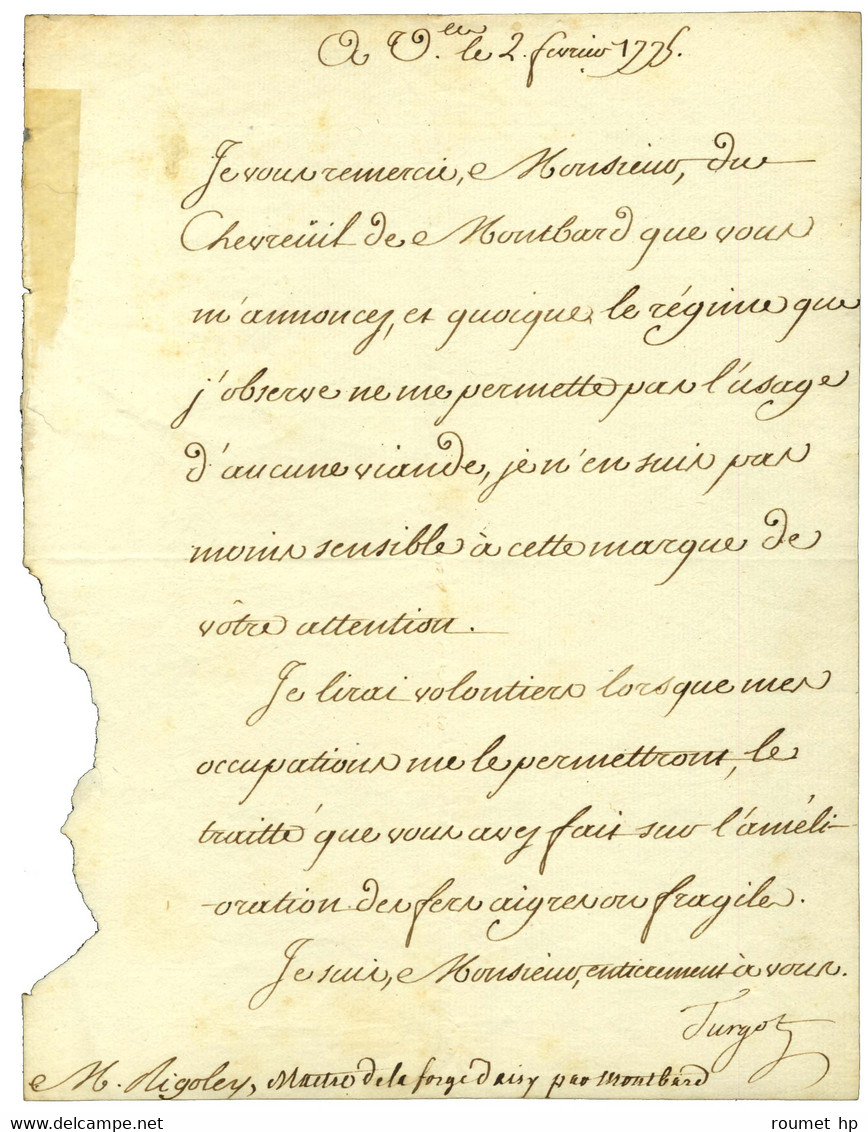 A V.lles le 2. fevrier 1775.
Je vous remercie, Monsieur, du
Chevreüil de Montbard que vous
m'annoncez, et quoique le régime que
j'observe ne me permette pas l'usage
d'aucune viande, je n'en suis pas
moins sensible à cette marque de
vôtre attention.
Je lirai volontiers lorsque mes
occupations me le permettront, le
traitté que vous avez fait sur l'améli-
-oration des fers aigres ou fragiles.
Je suis, Monsieur, entierement à vous.
Turgot
M. Rigoley, Maitre de la forge d'aisy par Montbard
roumet hp